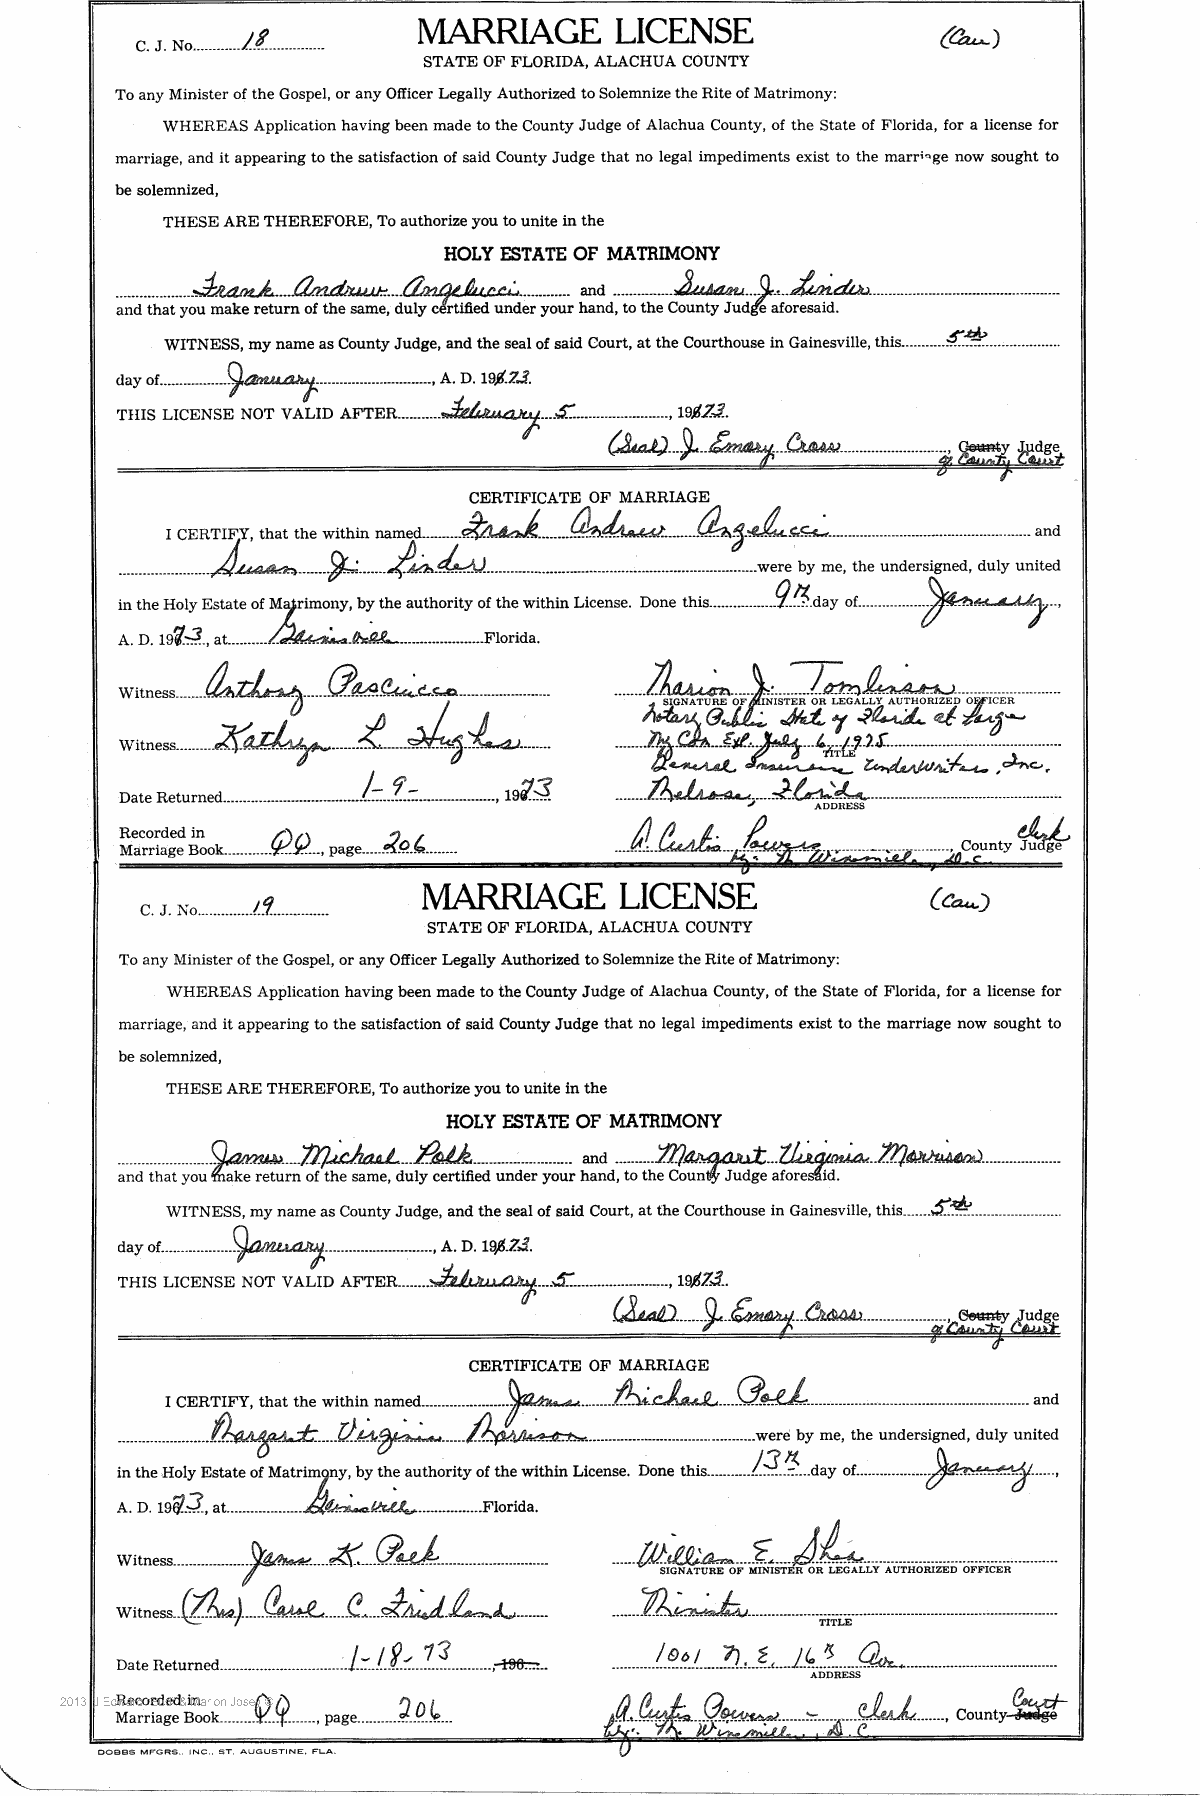 C. J. No. 18 MARRIAGE LICENSE (Cau)
STATE OF FLORIDA, ALACHUA COUNTY
To any Minister of the Gospel, or any Officer Legally Authorized to Solemnize the Rite of Matrimony:
WHEREAS Application having been made to the County Judge of Alachua County, of the State of Florida, for a license for
marriage, and it appearing to the satisfaction of said County Judge that no legal impediments exist to the marriage now sought to
be solemnized,
THESE ARE THEREFORE, To authorize you to unite in the
HOLY ESTATE OF MATRIMONY
Frank Andrew Angelucci and Susan J. Linder
and that you make return of the same, duly certified under your hand, to the County Judge aforesaid.
WITNESS, my name as County Judge, and the seal of said Court, at the Courthouse in Gainesville, this 5th
day of January, A. D. 1973.
THIS LICENSE NOT VALID AFTER February 5, 1973.
(Seal) J. Emory Cross, County Judge
of County Court
CERTIFICATE OF MARRIAGE
I CERTIFY, that the within named Frank Andrew Angelucci and
Susan J. Linder were by me, the undersigned, duly united
in the Holy Estate of Matrimony, by the authority of the within License. Done this 9th day of January,
A. D. 1973, at Gainsvill Florida.
Witness Anthony Pasciucco Marion J. Tomlinson
SIGNATURE OF MINISTER OR LEGALLY AUTHORIZED OFFICER
Notary Public State of Florida at Large
Witness Kathryn L. Hughes My Com Exp. July 6, 1975
TITLE
General Insurance Underwriters, Inc.
Date Returned 1-9-, 1973 Melrose, Florida
ADDRESS
Recorded in
Marriage Book QQ, page 206 A. Curtis Powers, County Judge clerk
by: M. Winsmiller, D.C.
C. J. No. 19 MARRIAGE LICENSE (Cau)
STATE OF FLORIDA, ALACHUA COUNTY
To any Minister of the Gospel, or any Officer Legally Authorized to Solemnize the Rite of Matrimony:
WHEREAS Application having been made to the County Judge of Alachua County, of the State of Florida, for a license for
marriage, and it appearing to the satisfaction of said County Judge that no legal impediments exist to the marriage now sought to
be solemnized,
THESE ARE THEREFORE, To authorize you to unite in the
HOLY ESTATE OF MATRIMONY
James Michael Polk and Margaret Virginia Morrison
and that you make return of the same, duly certified under your hand, to the County Judge aforesaid.
WITNESS, my name as County Judge, and the seal of said Court, at the Courthouse in Gainesville, this 5th
day of January, A. D. 1973.
THIS LICENSE NOT VALID AFTER February 5, 1973.
(Seal) J. Emory Cross, County Judge
of County Court
CERTIFICATE OF MARRIAGE
I CERTIFY, that the within named James Michael Polk and
Margaret Virginia Morrison were by me, the undersigned, duly united
in the Holy Estate of Matrimony, by the authority of the within License. Done this 13th day of January,
A. D. 1973, at Gainsvill Florida.
Witness James K. Polk William E. Shea
SIGNATURE OF MINISTER OR LEGALLY AUTHORIZED OFFICER
Witness (Mrs) Carol C. Friedland Minister
TITLE
Date Returned 1-18-73, 196 1001 N.E. 16th Ave.
ADDRESS
Recorded in
Marriage Book QQ, page 206 A. Curtis Powers - Clerk, County Judge Court
by: M. Winsmiller, D.C.
DOBBS MFGRS., INC., ST. AUGUSTINE, FLA.